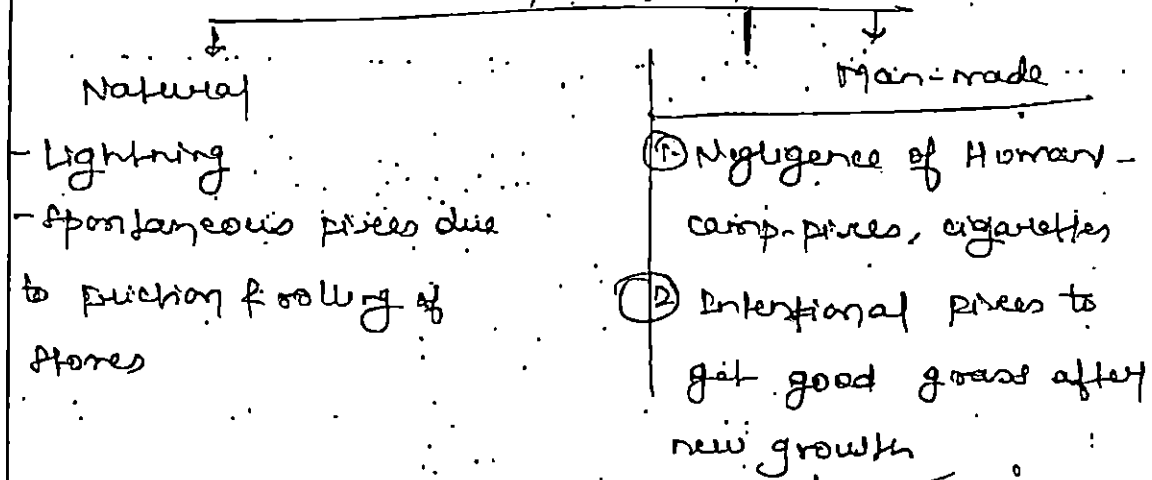 Natural
- Lightning
- Spontaneous fires due
to friction & rolling of
stones
Man-made
1. Negligence of Human -
camp-fires, cigarettes
2 Intentional fires to
get good grass after
new growth